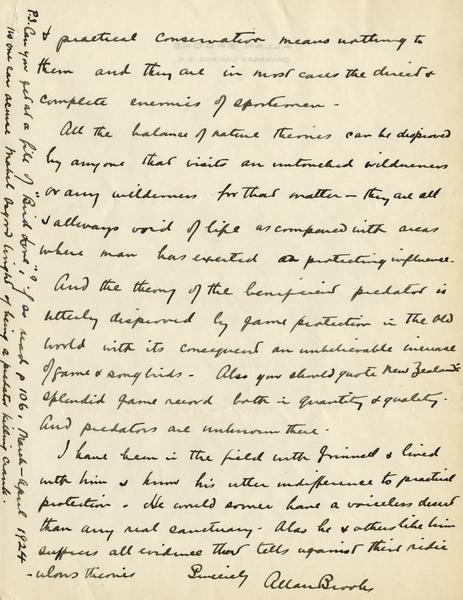 & practical conservation means nothing to
them and they are in most cases the direct &
complete enemies of sportsmen -
All the balance of nature theories can be disproved
by anyone that visits an untouched wilderness
or any wilderness for that matter - they are all
& allways void of life as compared with areas
where man has exerted a protecting influence.
And the theory of the beneficient predator is
utterly disproved by game protection in the Old
World with its consequent an unbelievable increase
of game & songbirds - Also you should quote New Zealand's
splendid game record both in quantity & quality.
And predators are unknown there.
I have been in the field with Grinnell & lived
with him & know his utter indifference to practical
protection. He would sooner have a voiceless desert
than any real sanctuary. Also he & others like him
suppress all evidence that tells against their ridic
-ulous theories Sincerely Allan Brooks
P.S. Can you get at a file of "Bird Lore"? if so read p 106, March-April 1924
No one can accuse Mabel Osgood Wright of being a predator killing crank.
ALLAN BROOKS
OKANAGAN LANDING, B.C.